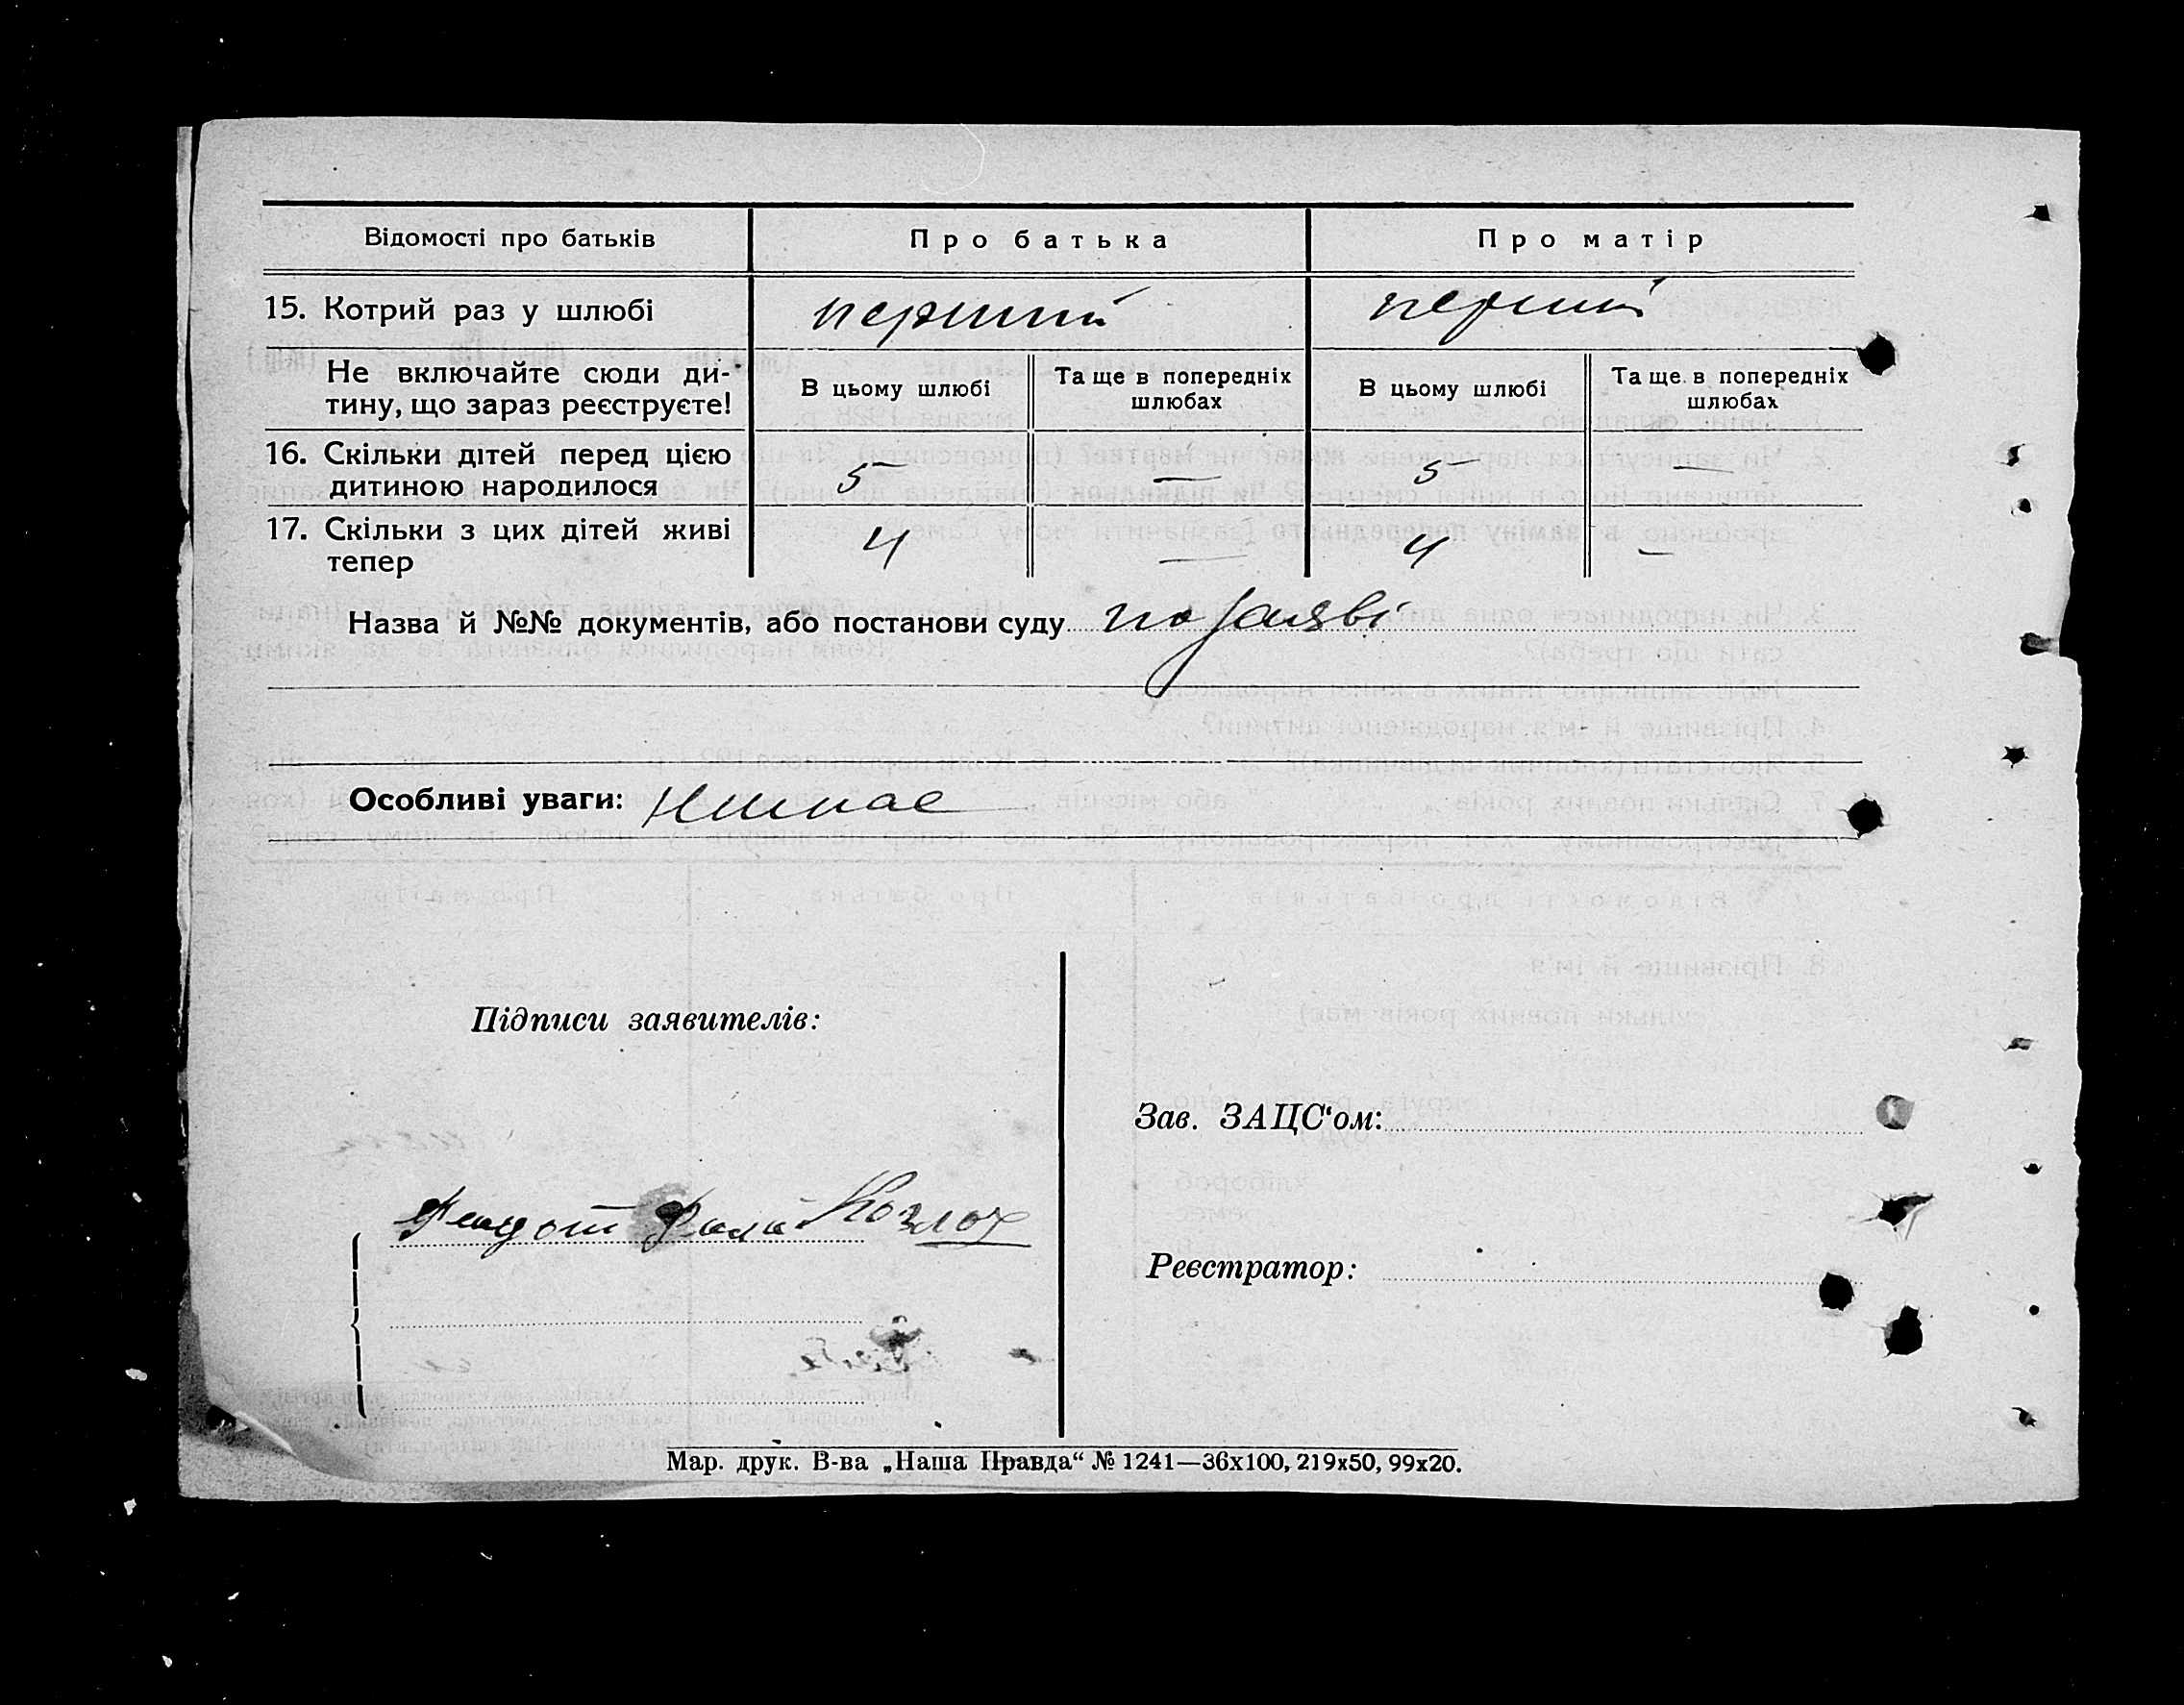 Відомості про батьків Про батька Про матір
15. Котрий раз у шлюбі перший перший
Не включайте сюди ди-
тину, що зараз реєструєте!
В цьому шлюбі
Та ще в попередніх
шлюбах
В цьому шлюбі
Та ще в попередніх
шлюбах
16. Скільки дітей перед цією
дитиною народилося
5 — 5 —
17. Скільки з цих дітей живі
тепер
4 — 4 —
Назва й №№ документів, або постанови суду по заяві
Особливі уваги: Немає
Підписи заявителів:
Зав. ЗАЦС‘ом:
Козлох
Реєстратор:
Мар. друк. В-ва „Наша Правда“ № 1241—36х100, 219х50, 99х20.